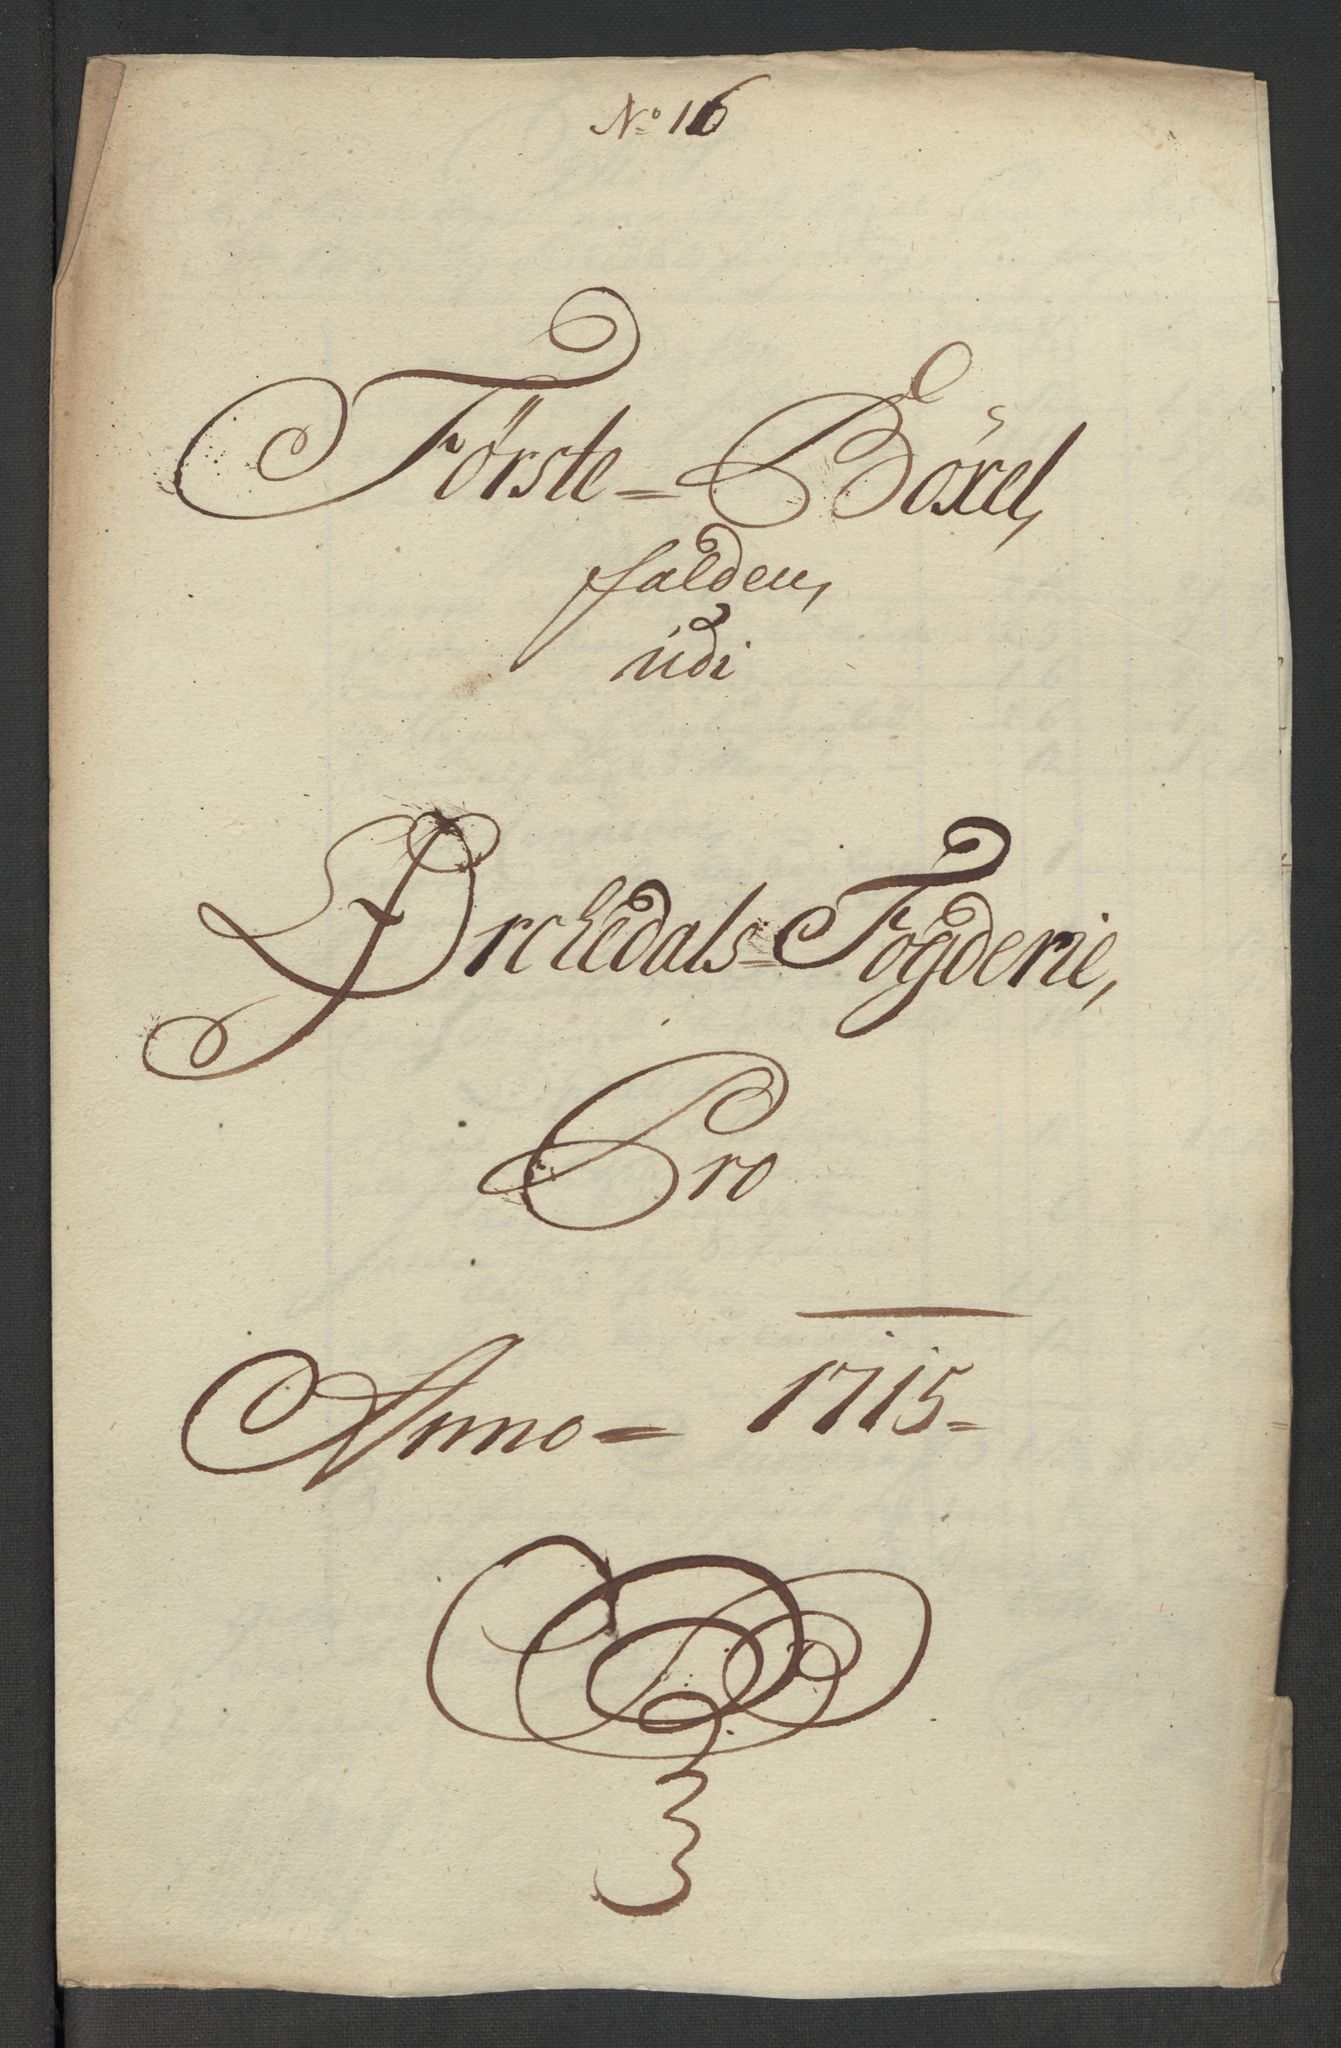 No 16
Første = Böxel,
falden,
udi
Ørchedals = Fogderie,
Pro
Anno = 1715 =